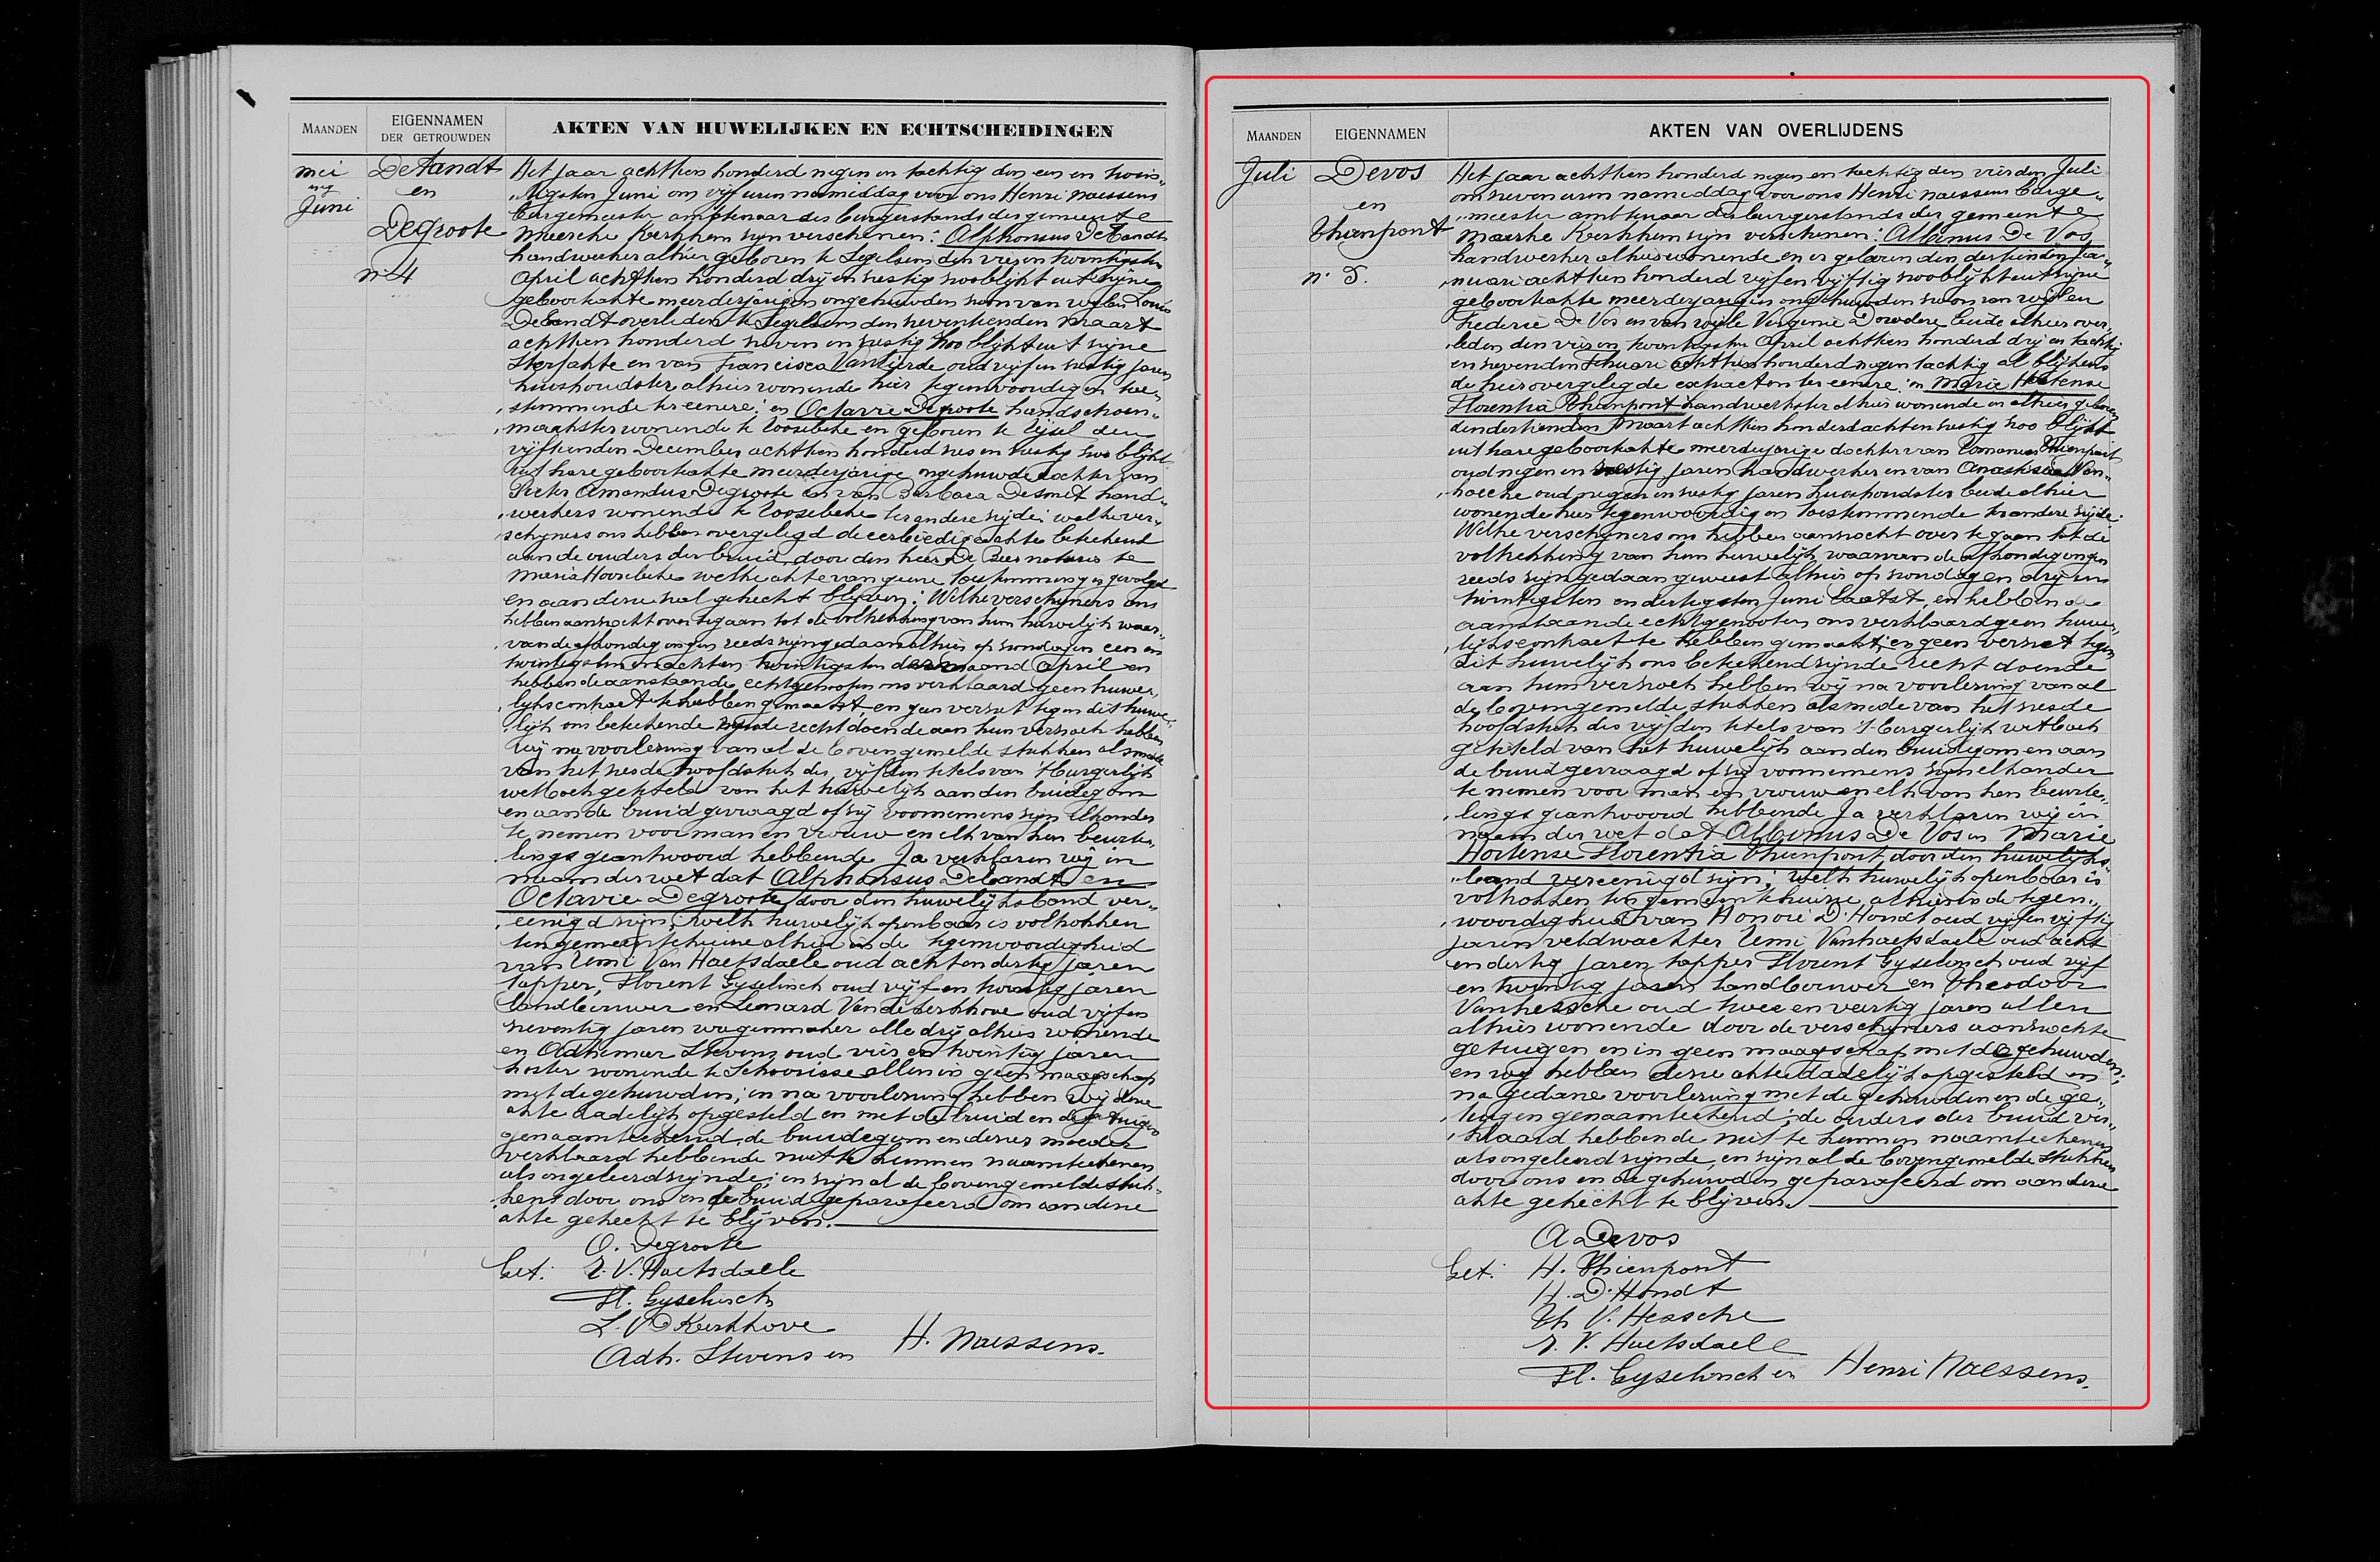 MAANDEN
EIGENNAMEN
DER GETROUWDEN
AKTEN VAN HUWELIJKEN EN ECHTSCHEIDINGEN
mei
en
Juni
De Tandt
en
Degroote
n. 4
Het jaar achttien honderd negen en tachtig den een en twin„
„tigsten Juni om vijf uren namiddag voor ons Henri Naessens
Burgemeester ambtenaar des burgerstands der gemeente
Maercke Kerkhem zijn verschenen: Alphonsus De Tandt
handwerker alhier geboren te Segelsem den vier en twintigsten
April achttien honderd drij en sestig zoo blijkt uit zijne
geboorteakte meerderjarigen ongehuwden zoon van wijlen Louis
De Tandt overleden te Segelsem den zeventienden Maart
achttien honderd zeven en sestig zoo blijkt uit zijne
sterfakte en van Francisca oud vijf en sestig jaren
huishoudster alhier wonende hier tegenwoordig en toe„
„stemmende ter eenere: en Octavie Degroote handschoen„
„maakster wonende te Roosebeke en geboren te den
vijftienden December achttien honderd zes en sestig zoo blijkt
uit hare geboorteakte meerderjarige ongehuwde dochter van
Pieter Amandus Degroote en van Barbara Desmet hand„
„werkers wonende te Roosebeke ter andere zijde: welke ver„
„schijners ons hebben overgelegd de eerbiedige akte betekend
aan de ouders der bruid door den heer De notaris te
Maria Hoorebeke welke akte van geene toestemming is gevolgd
en aan deze zal gehecht blijven: Welke verschijners ons
hebben aanzocht over te gaan tot de voltrekking van hun huwelijk waar„
„van de afkondigingen reeds zijn gedaan alhier op zondagen een en
twintigsten en achten twintigsten der maand April en
hebben de aanstaande echtgenoten ons verklaard geen huwe„
„lijkscontract te hebben gemaakt en geen verzet tegen dit huwe„
„lijk ons betekend zijnde recht doende aan hun verzoek hebben
wij na voorlezing van al de bovengemelde stukken alsmede
van het zesde hoofdstuk des vijfden titels van 't burgerlijk
wetboek getiteld van het huwelijk aan den bruidegom
en aan de bruid gevraagd of zij voornemens zijn elkander
te nemen voor man en vrouw en elk van hen beurte„
„lings geantwoord hebbende Ja verklaren wij in
naam der wet dat Alphonsus De Tandt en
Octavie Degroote door den huwelijksband ver„
„eenigd zijn; welk huwelijk openbaar is voltrokken
ten gemeentehuize alhier in de tegenwoordigheid
van Remi Van Haetsdaele oud acht en dertig jaren
tapper, Florent Gyselinck oud vijf en twintig jaren
landbouwer en Leonard Van de Kerkhove oud vijf en
zeventig jaren wagenmaker alle drij alhier wonende
en Adhemar Stevens oud vier en twintig jaren
koster wonende te Schoorisse allen in geen maagschap
met de gehuwden; en na voorlezing hebben wij deze
akte dadelijk opgesteld en met de bruid en de getuigen
genaamteekend, de bruidegom en dezes moeder
verklaard hebbende niet te kunnen naamteekenen
als ongeleerd zijnde; en zijn al de bovengemelde stuk„
„ken door ons en de bruid geparafeerd om aan deze
akte gehecht te blijven.
O. Degroote
Get: R. V. Haetsdaele
Fl. Gyselinck
L. VD Kerkhove
Adh. Stevens en H. Naessens.
MAANDEN
EIGENNAMEN
AKTEN VAN OVERLIJDENS
Juli
Devos
en
Thienpont
n. 5.
Het jaar achttien honderd negen en tachtig den vierden Juli
om zeven uren namiddag voor ons Henri Naessens burge„
„meester ambtenaar des burgerstands der gemeente
Maercke Kerkhem zijn verschenen: Albinus De Vos
handwerker alhier wonende en er geboren den dertienden Ja„
„nuari achttien honderd vijf en vijftig zoo blijkt uit zijne
geboorteakte meerderjarigen ongehuwden zoon van wijlen
Frederic De Vos en van wijle Virginie beide alhier over„
„leden den vier en twintigsten April achttien honderd drij en tachtig
en zevenden Februari achttien honderd negen tachtig al blijkens
de hier overgelegde extracten ter eenere: en Marie Hortense
Florentia Thienpont handwerkster alhier wonende en alhier geboren
den dertienden Maart achttien honderd acht en sestig zoo blijkt
uit hare geboorteakte meerderjarige dochter van Thienpont
oud negen en sestig jaren handwerker en van Anastasia Van„
„hoecke oud negen en sestig jaren huishoudster beide alhier
wonende hier tegenwoordig en toestemmende ter andere zijde.
Welke verschijners ons hebben aanzocht over te gaan tot de
voltrekking van hun huwelijk waarvan de afkondigingen
reeds zijn gedaan geweest alhier op zondagen drij en
twintigsten en dertigsten Juni laatst, en hebben de
aanstaande echtgenooten ons verklaard geen huwe„
„lijkscontract te hebben gemaakt; en geen verzet tegen
dit huwelijk ons betekend zijnde recht doende
aan hun verzoek hebben wij na voorlezing van al
de bovengemelde stukken alsmede van het zesde
hoofdstuk des vijfden titels van 't burgerlijk wetboek
getiteld van het huwelijk aan den bruidegom en aan
de bruid gevraagd of zij voornemens zijn elkander
te nemen voor man en vrouw en elk van hen beurte„
„lings geantwoord hebbende Ja verklaren wij in
naam der wet dat Albinus De Vos en Marie
Hortense Florentia Thienpont door den huwelijks„
„band vereenigd zijn; welk huwelijk openbaar is
voltrokken ten gemeentehuize alhier in de tegen„
„woordigheid van Honoré D'Hondt oud vijf en vijftig
jaren veldwachter Remi Vanhaetsdaele oud acht
en dertig jaren tapper Florent Gyselinck oud vijf
en twintig jaren landbouwer en Theodoor
Vanhessche oud twee en veertig jaren allen
alhier wonende door de verschijners aanzochte
getuigen en in geen maagschap met de gehuwden;
en wij hebben deze akte dadelijk opgesteld en
na gedane voorlezing met de gehuwden en de ge„
„tuigen genaamteekend; de ouders der bruid ver„
„klaard hebbende niet te kunnen naamteekenen
als ongeleerd zijnde, en zijn al de bovengemelde stukken
door ons en de gehuwden geparafeerd om aan deze
akte gehecht te blijven.
A Devos
Get: H. Thienpont
H. D'Hondt
Th V. Hessche
R. V. Haetsdaele
Fl. Gyselinck en Henri Naessens.